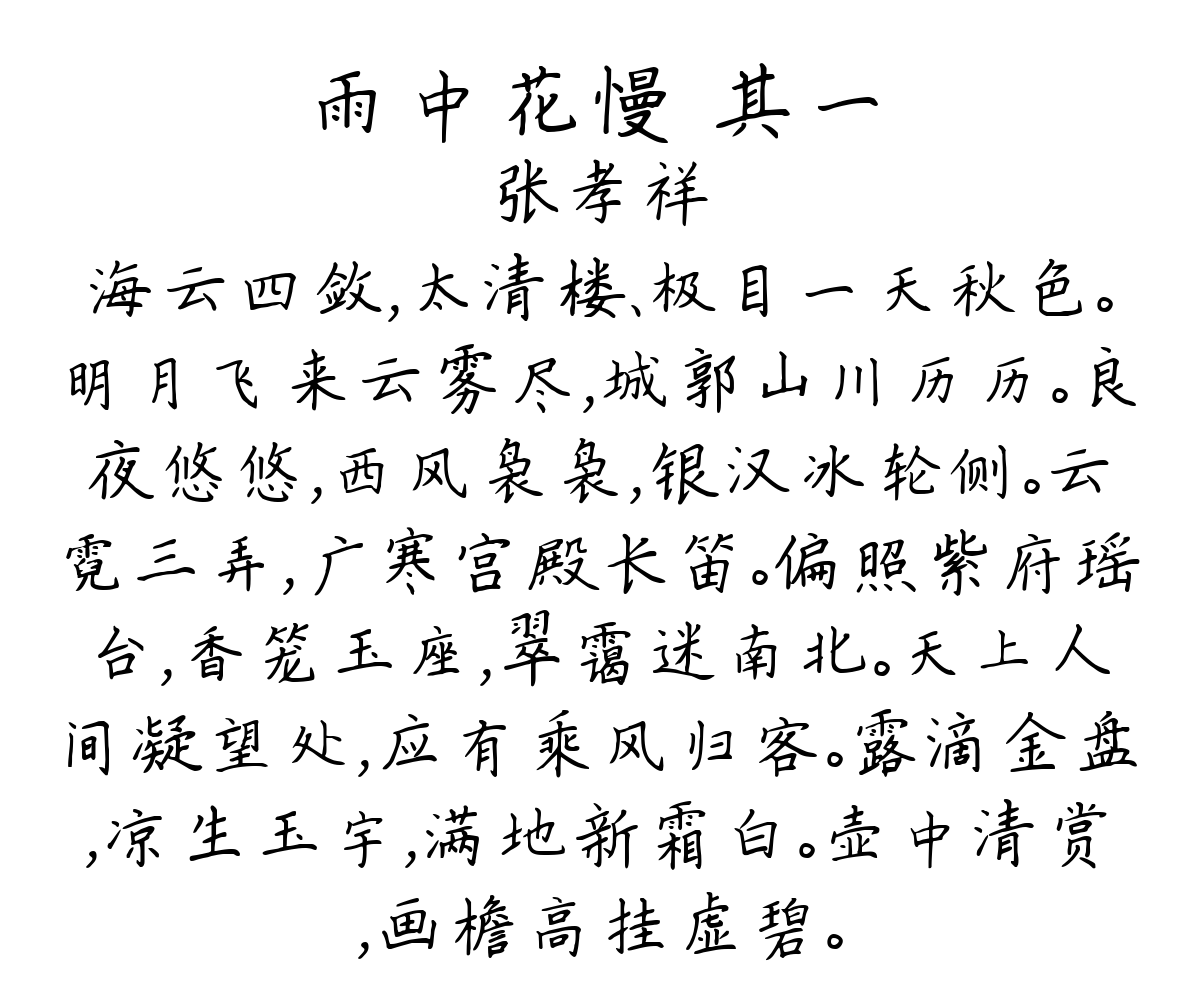 雨中花慢 其一
张孝祥
海云四敛,太清楼、极目一天秋色。
明月飞来云雾尽,城郭山川历历。良
夜悠悠,西风袅袅,银汉冰轮侧。云
霓三弄,广寒宫殿长笛。偏照紫府瑶
台,香笼玉座,翠霭迷南北。天上人
间凝望处,应有乘风归客。露滴金盘
,凉生玉宇,满地新霜白。壶中清赏
,画檐高挂虚碧。